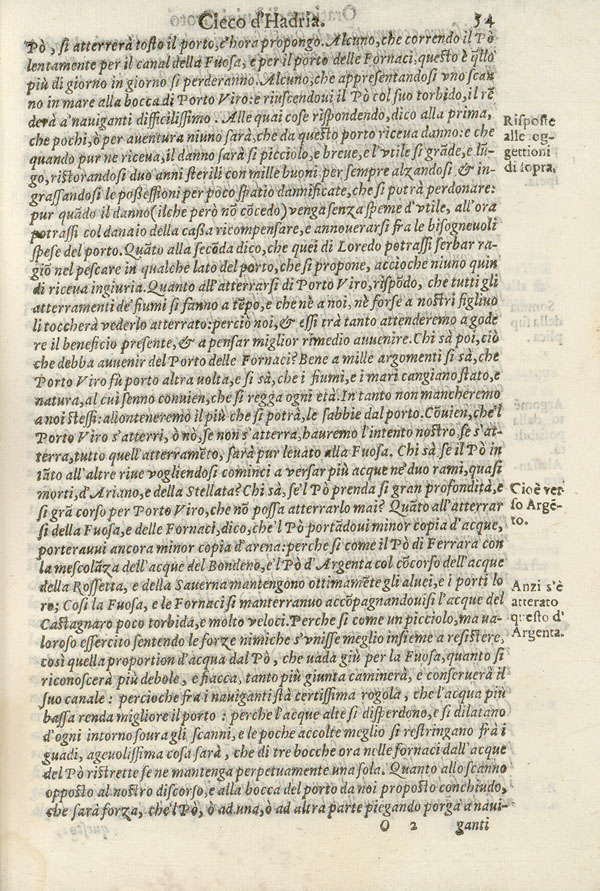 Cieco d'Hadria. 54
Pò, si atterrerà tosto il porto, e'hora propongo. Alcuno, che correndo il Pò
lentamente per il canal della Fuosa, e per il porto delle Fornaci, questo è q̃llo
più di giorno in giorno si perderanno. Alcuno, che appresentandosi vno scan
no in mare alla bocca di Porto Viro: e riuscendoui il Pò col suo torbido, il rẽ
derà a' nauiganti difficilissimo. Alle quai cose rispondendo, dico alla prima,
che pochi, ò per auentura niuno sarà, che da questo porto riceua danno: e che
quando pur ne riceua, il danno sarà sì picciolo, e breue, e l'vtile sì grãde, e lũ-
go, ristorandosi duo anni sterili con mille buoni per sempre alzandosi & in-
grassandosi le possessioni per poco spatio dannificate, che si potrà perdonare:
pur quãdo il danno (ilche però nõ cõcedo) venga senza speme d'vtile, all'ora
potrassi col danaio della cassa ricompensare, e annouerarsi fra le bisogneuoli
spese del porto. Quãto alla secõda dico, che quei di Loredo potrassi serbar ra-
giõ nel pescare in qualche lato del porto, che si propone, accioche niuno quin
di riceua ingiuria. Quanto all'atterrarsi di Porto Viro, rispõdo, che tutti gli
atterramenti de' fiumi si fanno a tẽpo, e che nè a noi, nè forse a nostri figliuo
li toccherà vederlo atterrato: perciò noi, & essi trà tanto attenderemo a gode
re il beneficio presente, & a pensar miglior rimedio auuenire. Chi sà poi, ciò
che debba auuenir del Porto delle Fornaci? Bene a mille argomenti si sà, che
Porto Viro fù porto altra uolta, e si sà, che i fiumi, e i mari cangiano stato, e
natura, al cui senno conuien, che si regga ogni età. In tanto non mancheremo
a noi stessi: allontaneremo il più che si potrà, le sabbie dal porto. Cõuien, che'l
Porto Viro s'atterri, ò nò, se non s'atterra, hauremo l'intento nostro. se s'at-
terra, tutto quell'atterramẽto, sarà pur leuato alla Fuosa. Chi sà se il Pò in
tãto all'altre riue vogliendosi cominci a versar più acque ne' duo rami, quasi
morti, d'Ariano, e della Stellata? Chi sà, se'l Pò prenda sì gran profondità, e
sì grã corso per Porto Viro, che nõ possa atterrarlo mai? Quãto all'atterrar
si della Fuosa, e delle Fornaci, dico, che'l Pò portãdoui minor copia d'acque,
porteraui ancora minor copia d'arena: perche sì come il Pò di Ferrara con
la mescolãza dell'acque del Bondeno, e'l Pò d'Argenta col cõcorso dell'acque
della Rossetta, e della Sauerna mantengono ottimamẽte gli aluei, e i porti lo
ro; Così la Fuosa, e le Fornaci si manterranuo accõpagnandouisi l'acque del
Castagnaro poco torbida, e molto veloci. Perche sì come un picciolo, ma ua-
loroso essercito sentendo le forze nimiche s'vnisse meglio insieme a resistere,
così quella proportion d'acqua dal Pò, che uada giù per la Fuosa, quanto si
riconoscerà più debole, e fiacca, tanto più giunta caminerà, e conseruerà il
suo canale: percioche fra i nauiganti stà certissima rogola, che l'acqua più
bassa renda migliore il porto: perche l'acque alte si disperdono, e si dilatano
d'ogni intorno soura gli scanni, e le poche accolte meglio si restringano frà i
guadi, ageuolissima cosa sarà, che di tre bocche ora nelle fornaci dall'acque
del Pò ristrette se ne mantenga perpetuamente una sola. Quanto allo scanno
opposto al nostro discorso, e alla bocca del porto da noi proposto conchiudo,
che sarà forza, che'l Pò, ò ad una, ò ad altra parte piegando porga a naui-
O 2 ganti
Risposte
alle og-
gettioni
di sopra.
Cioè ver
so Argẽ-
to.
Anzi s'è
atterato
questo d'
Argenta.